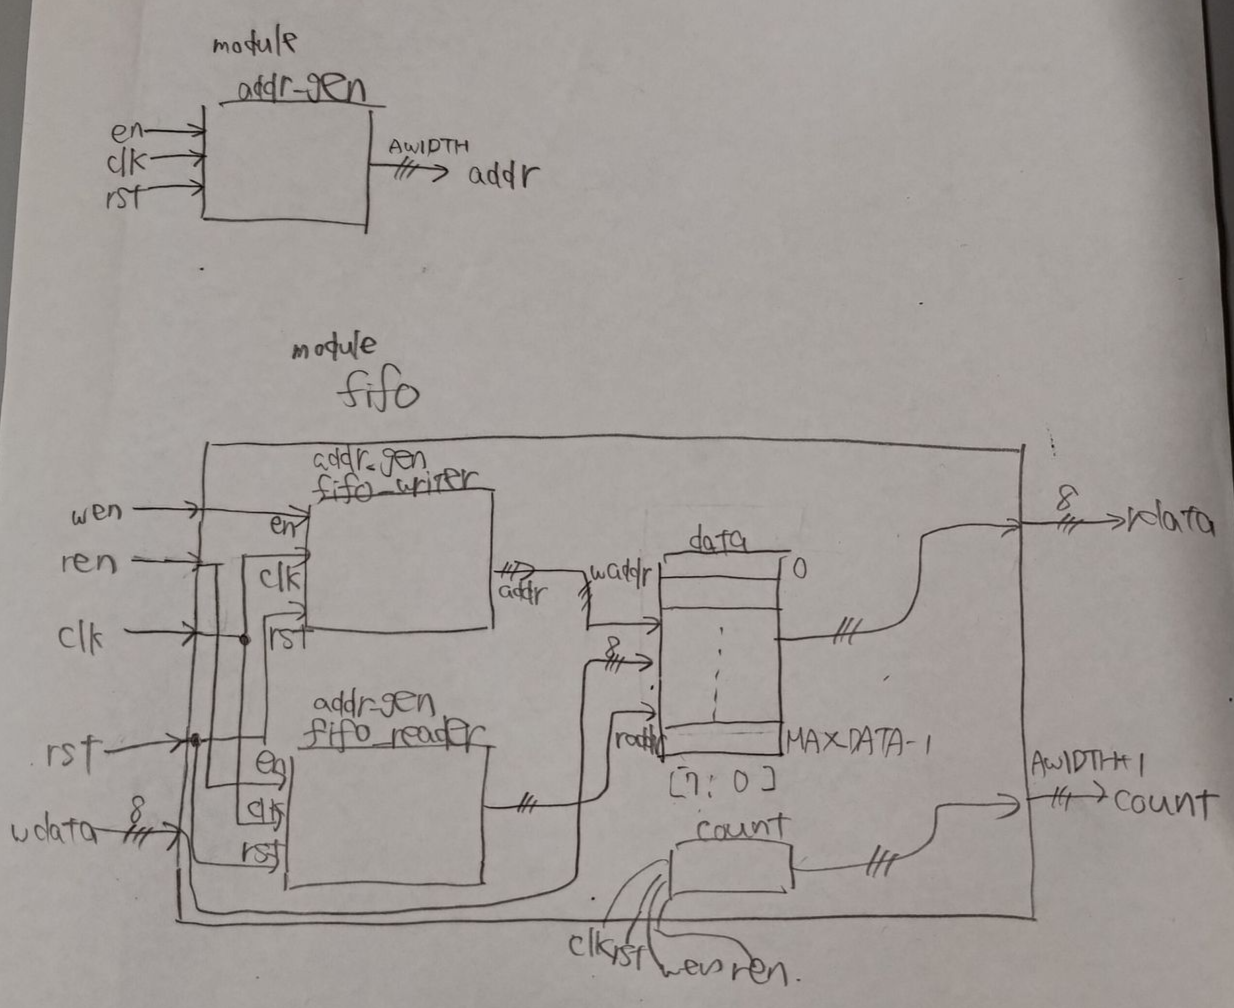 module
addr-gen
en
clk
rst
AWIDTH
addr
module
fifo
addr-gen
fifo_writer
wen
ren
clk
rst
wdata
8
en
clk
rst
addr
waddr
data
0
8
raddr
MAXDATA-1
[7:0]
8
rdata
addr-gen
fifo_reader
en
clk
rst
count
AWIDTH+1
count
clk
rst
wen
ren.